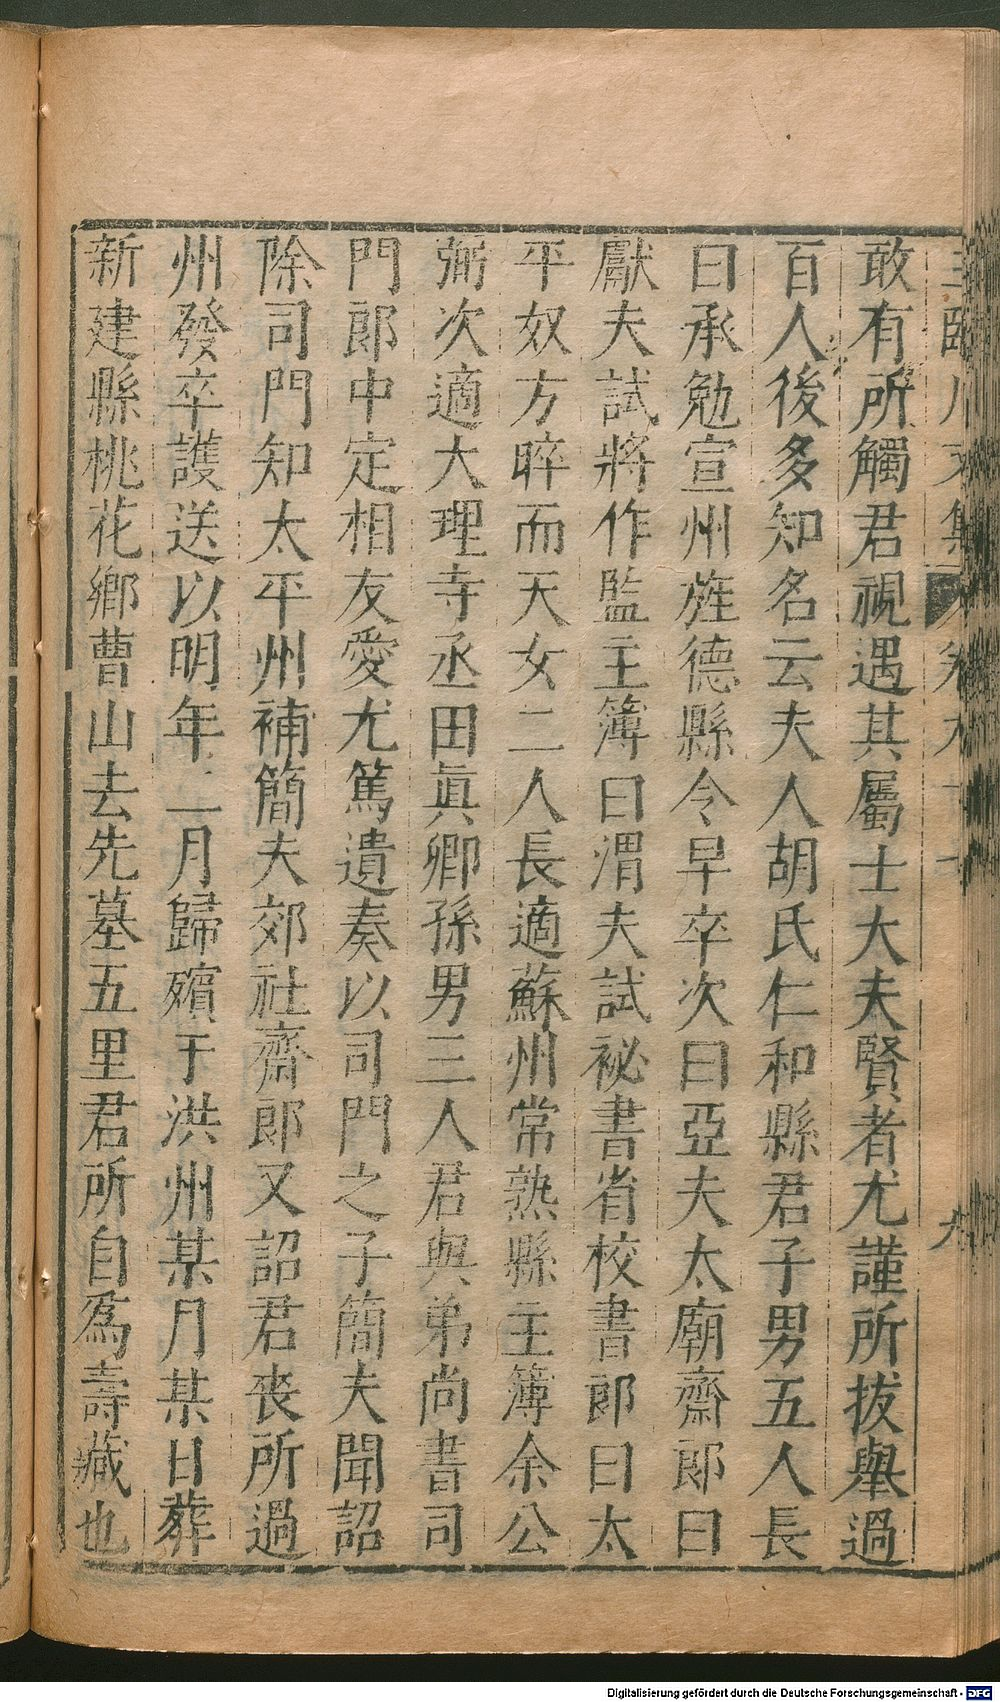 敢有所觸君視遇其屬士大夫賢者尤謹所拔舉過
百人後多知名云夫人胡氏仁和縣君子男五人長
曰承勉宣州旌德縣令早卒次曰亞夫太廟齋郎曰
獻夫試將作監主簿曰渭夫試祕書省校書郎曰太
平奴方晬而夭女二人長適蘇州常熟縣主簿余公
弼次適大理寺丞田眞卿孫男三人君與弟尚書司
門郎中定相友愛尤篤遺奏以司門之子簡夫聞詔
除司門知太平州補簡夫郊社齋郎又詔君丧所過
州發卒護送以明年二月歸殯于洪州某月某日葬
新建縣桃花鄉曹山去先墓五里君所自爲壽藏也
Digitalisierung gefördert durch die Deutsche Forschungsgemeinschaft - DFG